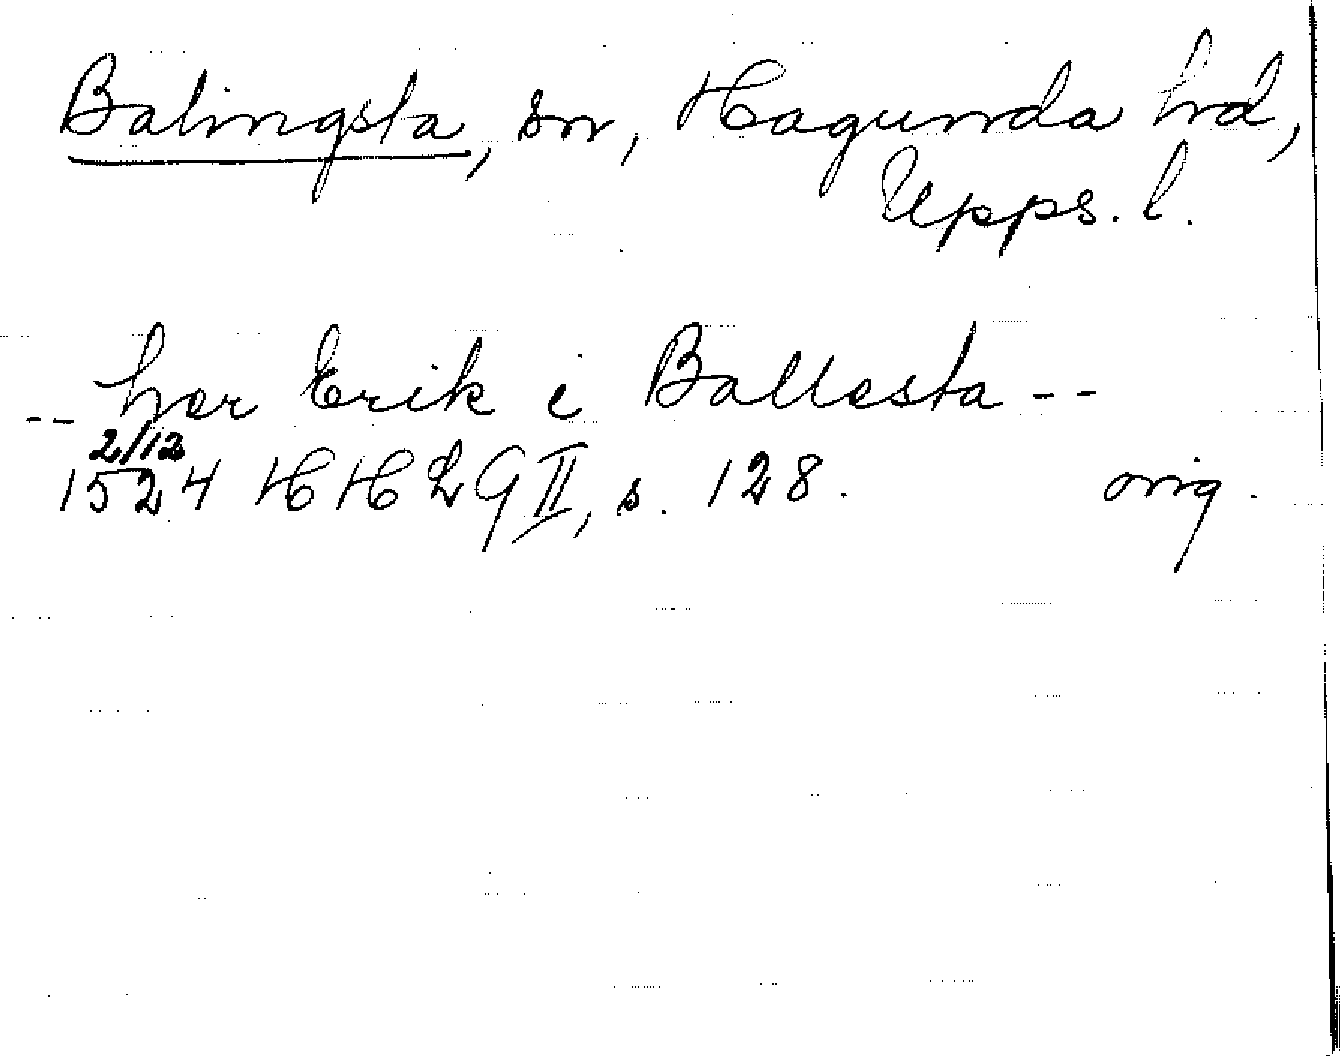 Balingsta, sn, Hagunda hd,
Upps. l.
-- her Erik i Ballesta --
2/12
1524 HHLG II, s. 128. orig.